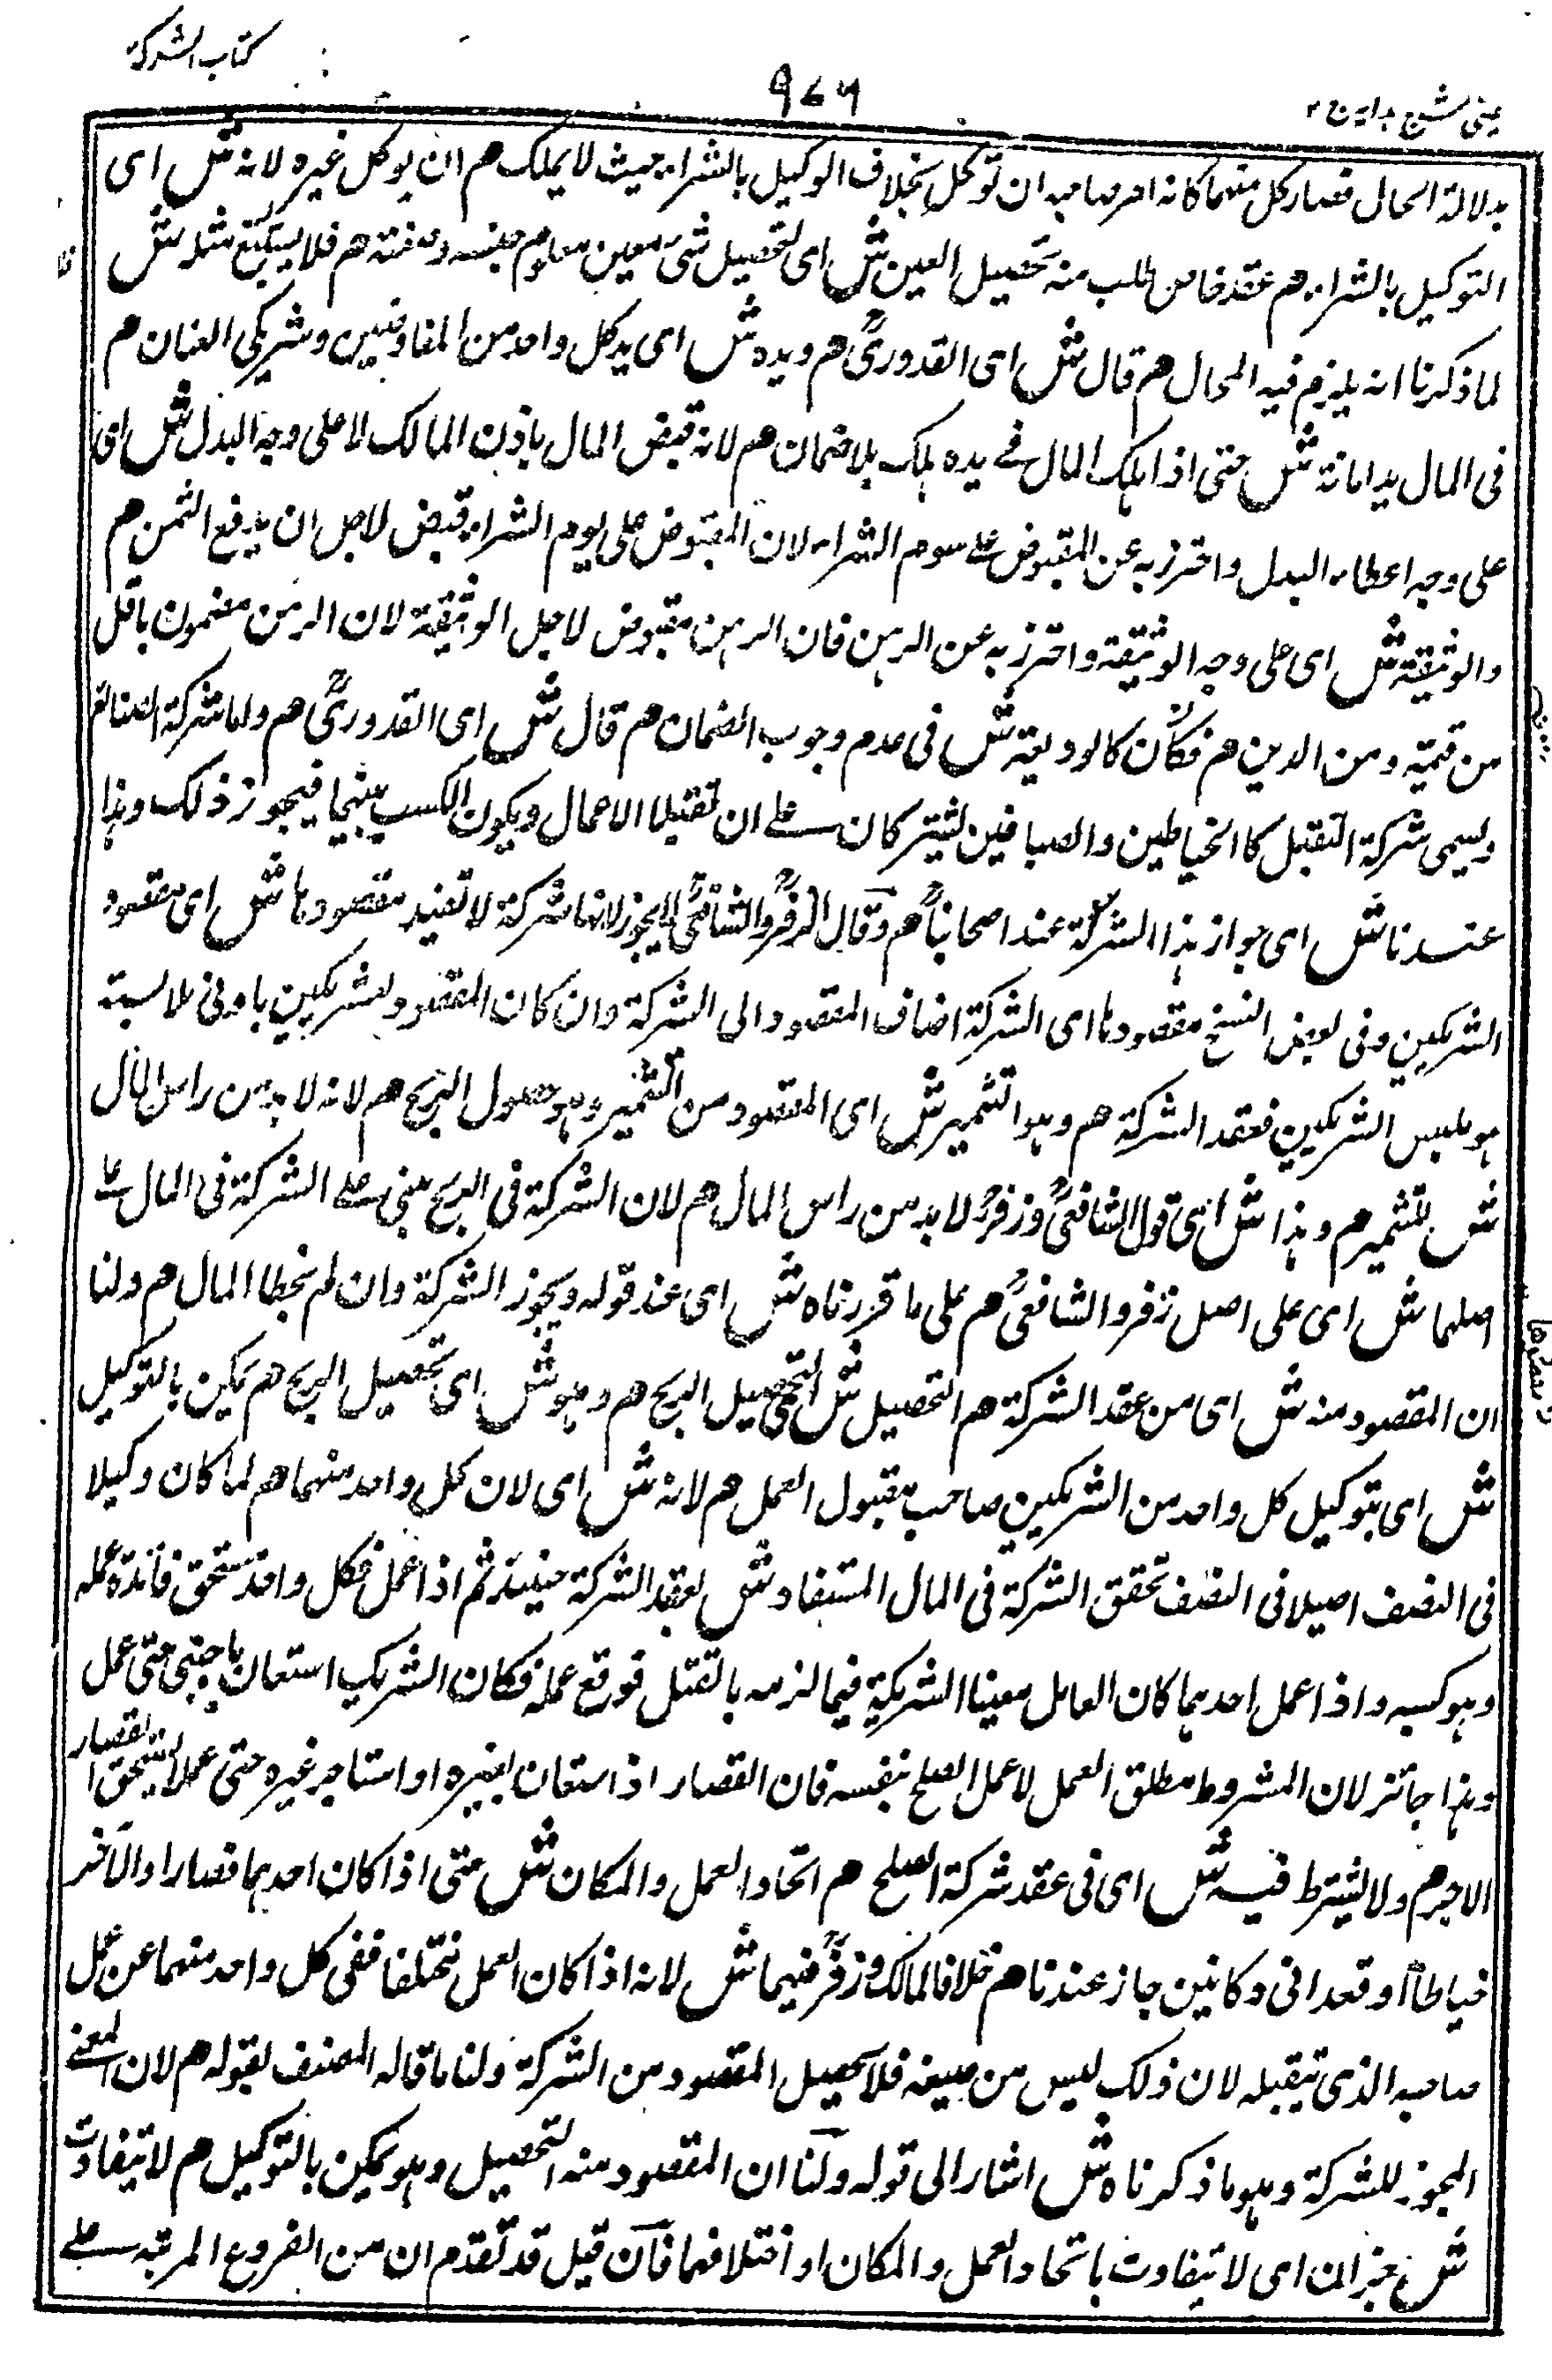 كتاب الشركة
٩٧٦
عينى شرح هداية ج ٢
بدلالة الحال فصار كل منهما كانه امر صاحبه ان توكل بخلاف الوكيل بالشراء حيث لا يملك هم ان يوكل غيره لانه ش اى
التوكيل بالشراء هم عقد خاص طلب منه تحصيل العين ش اى تحصيل شئ معين معلوم جنسه وصفته هم فلا يستتبع مثله ش
لما ذكرنا انه يلزم فيه المحال هم قال ش اى القدورىؒ هم ويده ش اى يد كل واحد من المفاوضين وشريكى العنان هم
فى المال يد امانة ش حتى اذا هلك المال فے يده هلك بلا ضمان هم لانه قبض المال باذن المالك لا على وجه البدل ش اى
على وجه اعطاء البدل واحترز به عن المقبوض علے سوم الشراء لان المقبوض على يوم الشراء قبض لاجل ان يدفع الثمن هم
والوثيقة ش اى على وجه الوثيقة واحترز به عن الرهن فان الرهن مقبوض لاجل الوثيقة لان الرهن مضمون باقل
من قيمته ومن الدين هم فكان كالوديعة ش فى عدم وجوب الضمان هم قال ش اى القدورىؒ هم واما شركة الصنائع
ويسمى شركة التقبل كالخياطين والصباغين يشتركان علے ان تقبلا الاعمال ويكون الكسب بينهما فيجوز ذلك وهذا
عندنا ش اى جواز هذا الشركة عند اصحابناؒ هم وقال الزفرؒ والشافعىؒ لا يجوز لانها شركة لا تفيد مقصودها ش اى مقصود
الشريكين وفى بعض النسخ مقصودها اى الشركة اضاف المقصود الى الشركة وان كان المقصود لشريكين بادنى ملابسة
هو ملبس الشريكين فعقد الشركة هم وهو التثمير ش اى المقصود من التثمير وهو حصول الربح هم لانه لا بد من راس المال
ش للتثمير هم وهذا ش اى قول الشافعىؒ وزفرؒ لا بد من راس المال هم لان الشركة فى الربح مبنى علے الشركة فى المال علے
اصلهما ش اى على اصل زفر والشافعىؒ هم على ما قررناه ش اى عند قوله ويجوز الشركة وان لم يخلطا المال هم ولنا
ان المقصود منه ش اى من عقد الشركة هم التحصيل ش اى تحصيل الربح هم وهو ش اى تحصيل الربح هم يمكن بالتوكيل
ش اى بتوكيل كل واحد من الشريكين صاحبه بقبول العمل هم لانه ش اى لان كل واحد منهما هم لما كان وكيلا
فى النصف اصيلا فى النصف تحقق الشركة فى المال المستفاد ش بعقد الشركة حينئذ ثم اذا عمل فكل واحد يستحق فائدة عمله
وهو كسبه واذا عمل احدهما كان العامل معينا الشريكه فيما لزمه بالتقبل فوقع عمله فكان الشريك استعان باجنبى حتى عمل
وهذا جائز لان المشروط مطلق العمل لا عمل الصلح بنفسه فان القصار اذا استعان بغيره او استاجر غيره حتى عملا يستحق القصار
الاجر هم ولا يشترط فيه ش اى فى عقد شركة الصلح هم اتحاد العمل والمكان ش حتى اذا كان احدهما قصارا والاخر
خياطا او قعدا فى دكانين جاز عندنا هم خلافا لمالك وزفرؒ فيهما ش لانه اذا كان العمل مختلفا ففى كل واحد منهما عن عمل
صاحبه الذى يتقبله لان ذلك ليس من صيغه فلا يحصل المقصود من الشركة ولنا ما قاله المصنف بقوله هم لان المعنے
المجوز للشركة وهو ما ذكرناه ش اشار الى قوله ولنا ان المقصود منه التحصيل وهو يمكن بالتوكيل هم لا يتفاوت
ش خبر ان اى لا يتفاوت باتحاد العمل والمكان او اختلافهما فان قيل قد تقدم ان من الفروع المرتبه علے